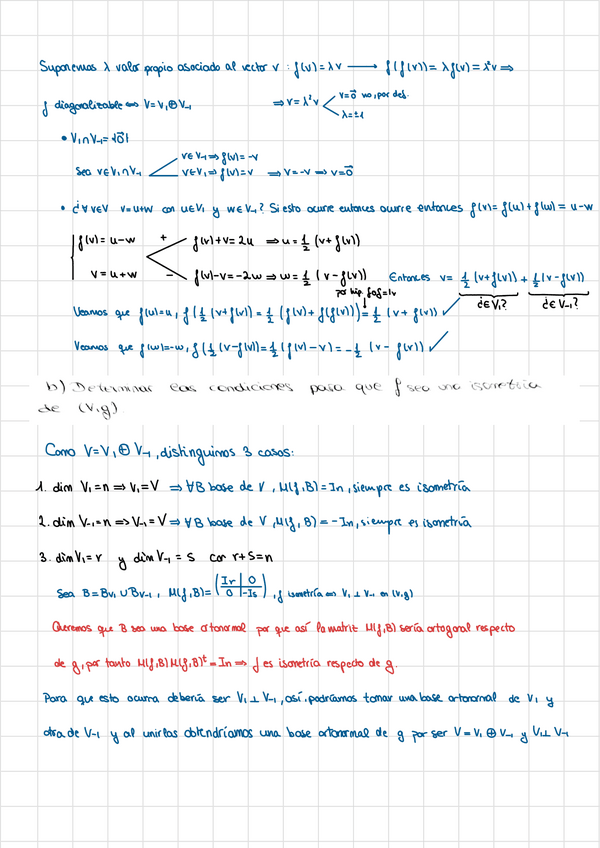 Suponemos λ valor propio asociado al vector v : f(v) = λv ⟶ f(f(v)) = λf(v) = λ²v ⟹
f diagonalizable ⟺ V = V₁ ⊕ V₋₁ ⟹ v = λ²v < v = 0⃗ no, por def.
λ = ±1
• V₁ ∩ V₋₁ = {0⃗}
Sea v ∈ V₁ ∩ V₋₁ < v ∈ V₋₁ ⟹ f(v) = -v
v ∈ V₁ ⟹ f(v) = v ⟹ v = -v ⟹ v = 0⃗
• ¿∀v∈V v = u+w con u∈V₁ y w∈V₋₁? Si esto ocurre entonces ocurre entonces f(v) = f(u) + f(w) = u - w
f(v) = u - w + f(v) + v = 2u ⟹ u = 1/2 (v + f(v))
v = u + w - f(v) - v = -2w ⟹ w = 1/2 (v - f(v)) Entonces v = 1/2 (v + f(v)) + 1/2 (v - f(v))
por hip. f∘f = 1v ¿∈ V₁? ¿∈ V₋₁?
Veamos que f(u) = u, f(1/2 (v + f(v)) = 1/2 (f(v) + f(f(v))) = 1/2 (v + f(v)) ✓
Veamos que f(w) = -w, f(1/2 (v - f(v)) = 1/2 (f(v) - v) = -1/2 (v - f(v)) ✓
b) Determinar las condiciones para que f sea una isometría
de (V,g)
Como V = V₁ ⊕ V₋₁, distinguimos 3 casos:
1. dim V₁ = n ⟹ V₁ = V ⟹ ∀B base de V, M(f,B) = In, siempre es isometría
2. dim V₋₁ = n ⟹ V₋₁ = V ⟹ ∀B base de V, M(f,B) = -In, siempre es isometría
3. dim V₁ = r y dim V₋₁ = s con r+s = n
Sea B = Bv₁ ∪ Bv₋₁, M(f,B) = (Ir | 0 / 0 | -Is), f isometría ⟺ V₁ ⊥ V₋₁ en (V,g)
Queremos que B sea una base ortonormal por que así la matriz M(f,B) sería ortogonal respecto
de g, por tanto M(f,B)M(f,B)ᵗ = In ⟹ f es isometría respecto de g.
Para que esto ocurra debería ser V₁ ⊥ V₋₁, así, podríamos tomar una base ortonormal de V₁ y
otra de V₋₁ y al unirlas obtendríamos una base ortonormal de g por ser V = V₁ ⊕ V₋₁ y V₁ ⊥ V₋₁